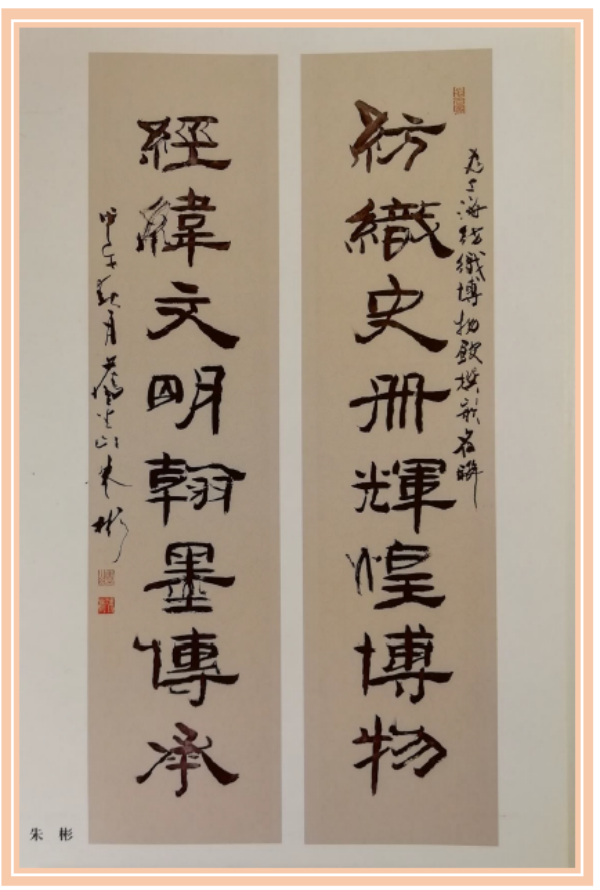 为上海纺織博物館撰嵌名聯
紡織史冊輝煌博物
經緯文明翰墨傳承
甲午秋月山朱彬
朱 彬